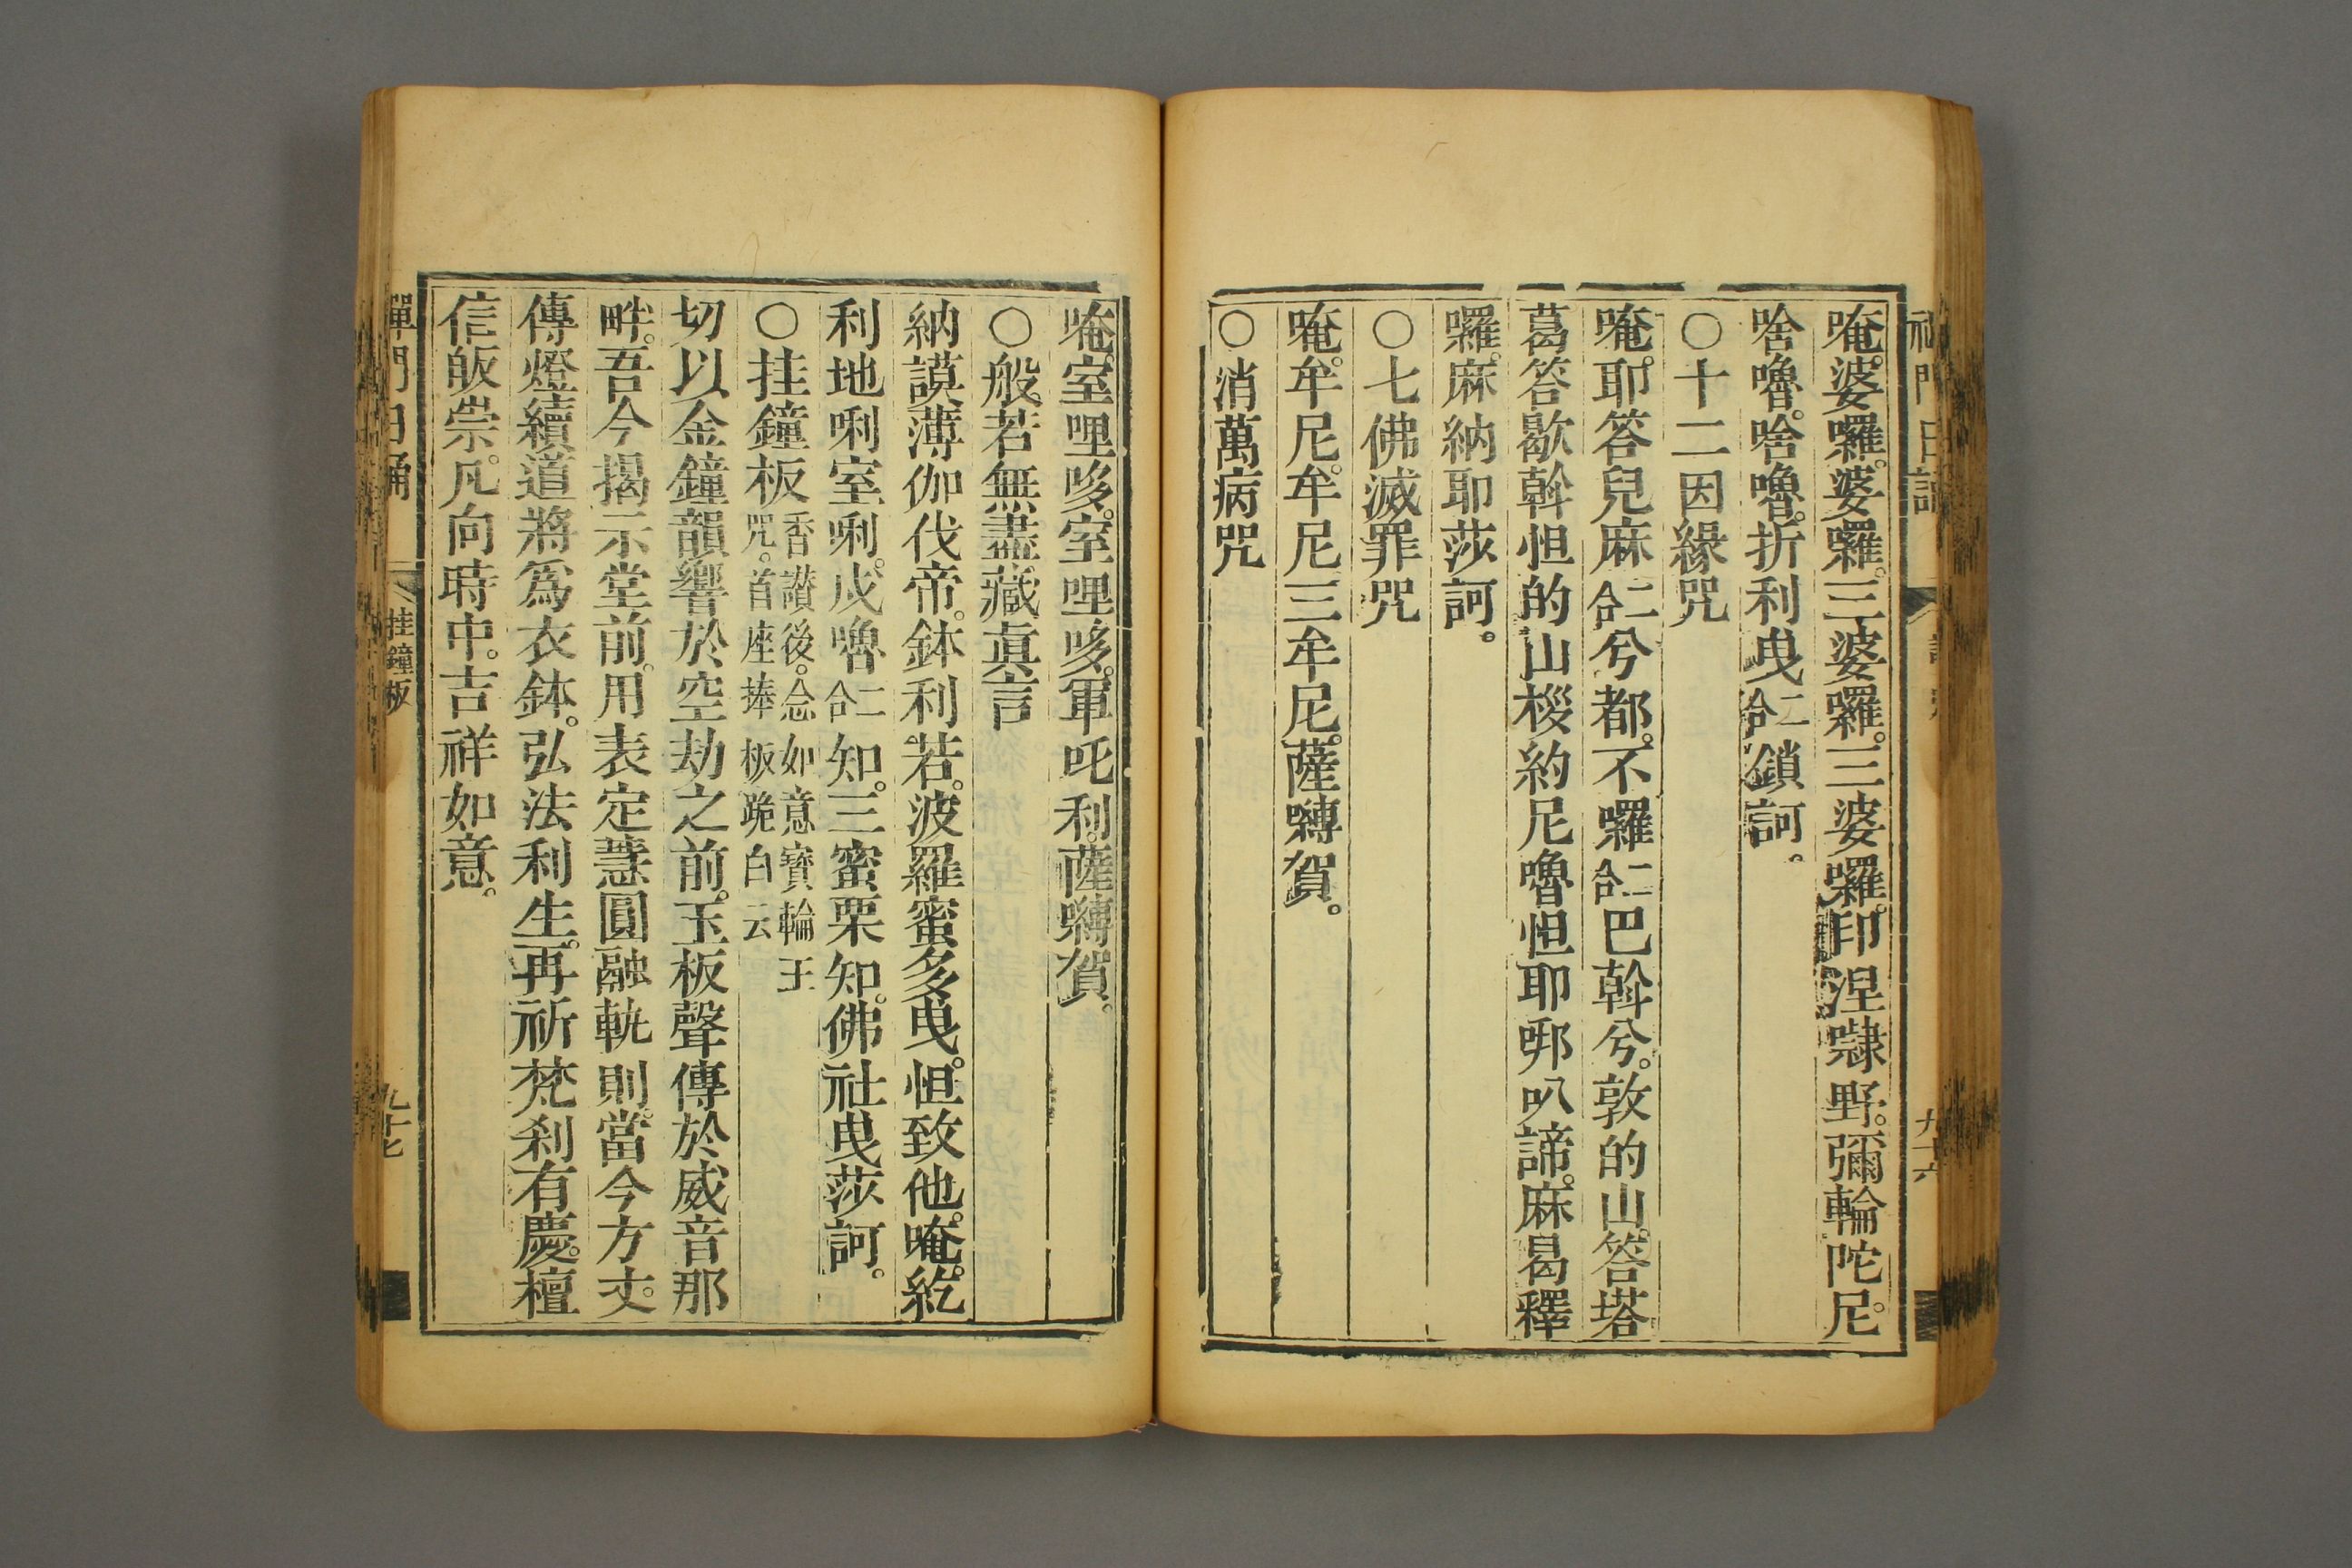 唵。婆囉。婆囉。三婆囉。三婆囉。印涅㘑野。彌輪陀尼。
啥嚕。啥嚕。折利曳二合鎖訶。
○十二因緣咒
唵。耶答兒麻二合兮都。不囉二合巴斡兮。敦的山。答塔
葛答歇斡怛的山椶約尼嚕怛耶㖿叭諦。麻曷釋
囉。麻納耶莎訶。
○七佛滅罪咒
唵。牟尼。牟尼三牟尼。薩嚩賀。
○消萬病咒
唵。室哩哆。室哩哆。軍吒利。薩嚩賀。
○般若無盡藏眞言
納謨薄伽伐帝。鉢利若。波羅蜜多曳。怛致他。唵。紇
利地唎室唎。戍嚕二合知。三蜜栗知。佛社曳莎訶。
○挂鐘板香讃後。念如意寶輪王
咒。首座捧板跪白云
切以金鐘韻響於空劫之前。玉板聲傳於威音那
畔。吾今揭示堂前。用表定慧圓融軌則。當今方丈。
傳燈續道將爲衣鉢。弘法利生。再祈梵刹有慶。檀
信皈崇。凡向時中。吉祥如意。
禪門日誦
挂鐘板
九十七
門日誦
九十六